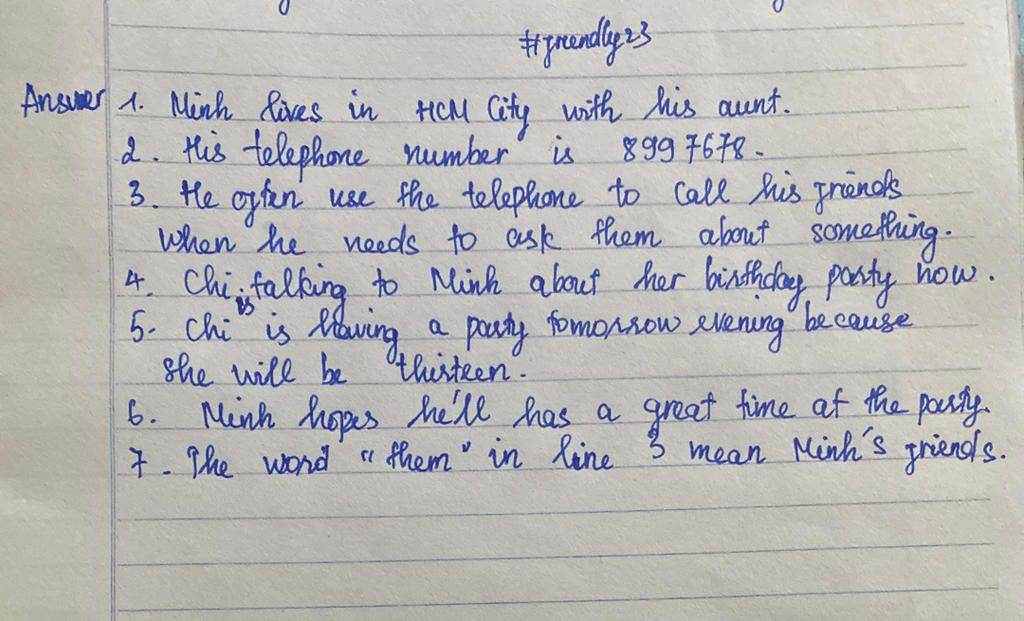 #friendly23
Answer 1. Minh lives in HCM City with his aunt.
2. His telephone number is 8997678.
3. He often use the telephone to call his friends
when he needs to ask them about something.
4. Chi is talking to Minh about her birthday party now.
5. Chi is having a party tomorrow evening because
she will be thirteen.
6. Minh hopes he'll has a great time at the party.
7. The word "them" in line 3 mean Minh's friends.